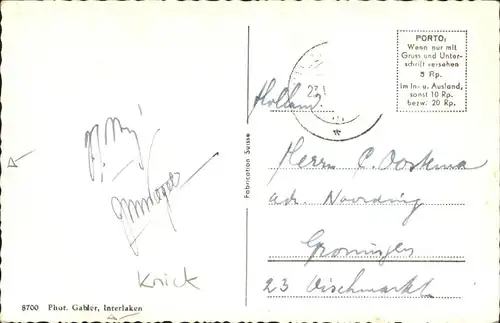 PORTO:
Wenn nur mit
Gruss und Unter-
schrift versehen
5 Rp.
im In- u. Ausland,
sonst 10 Rp.
bezw. 20 Rp.
Holland.
Herrn C. Oostema
adr. Noording
Groningen
23 Vischmarkt
Fabrication Suisse
Knick
8700 Phot. Gabler, Interlaken